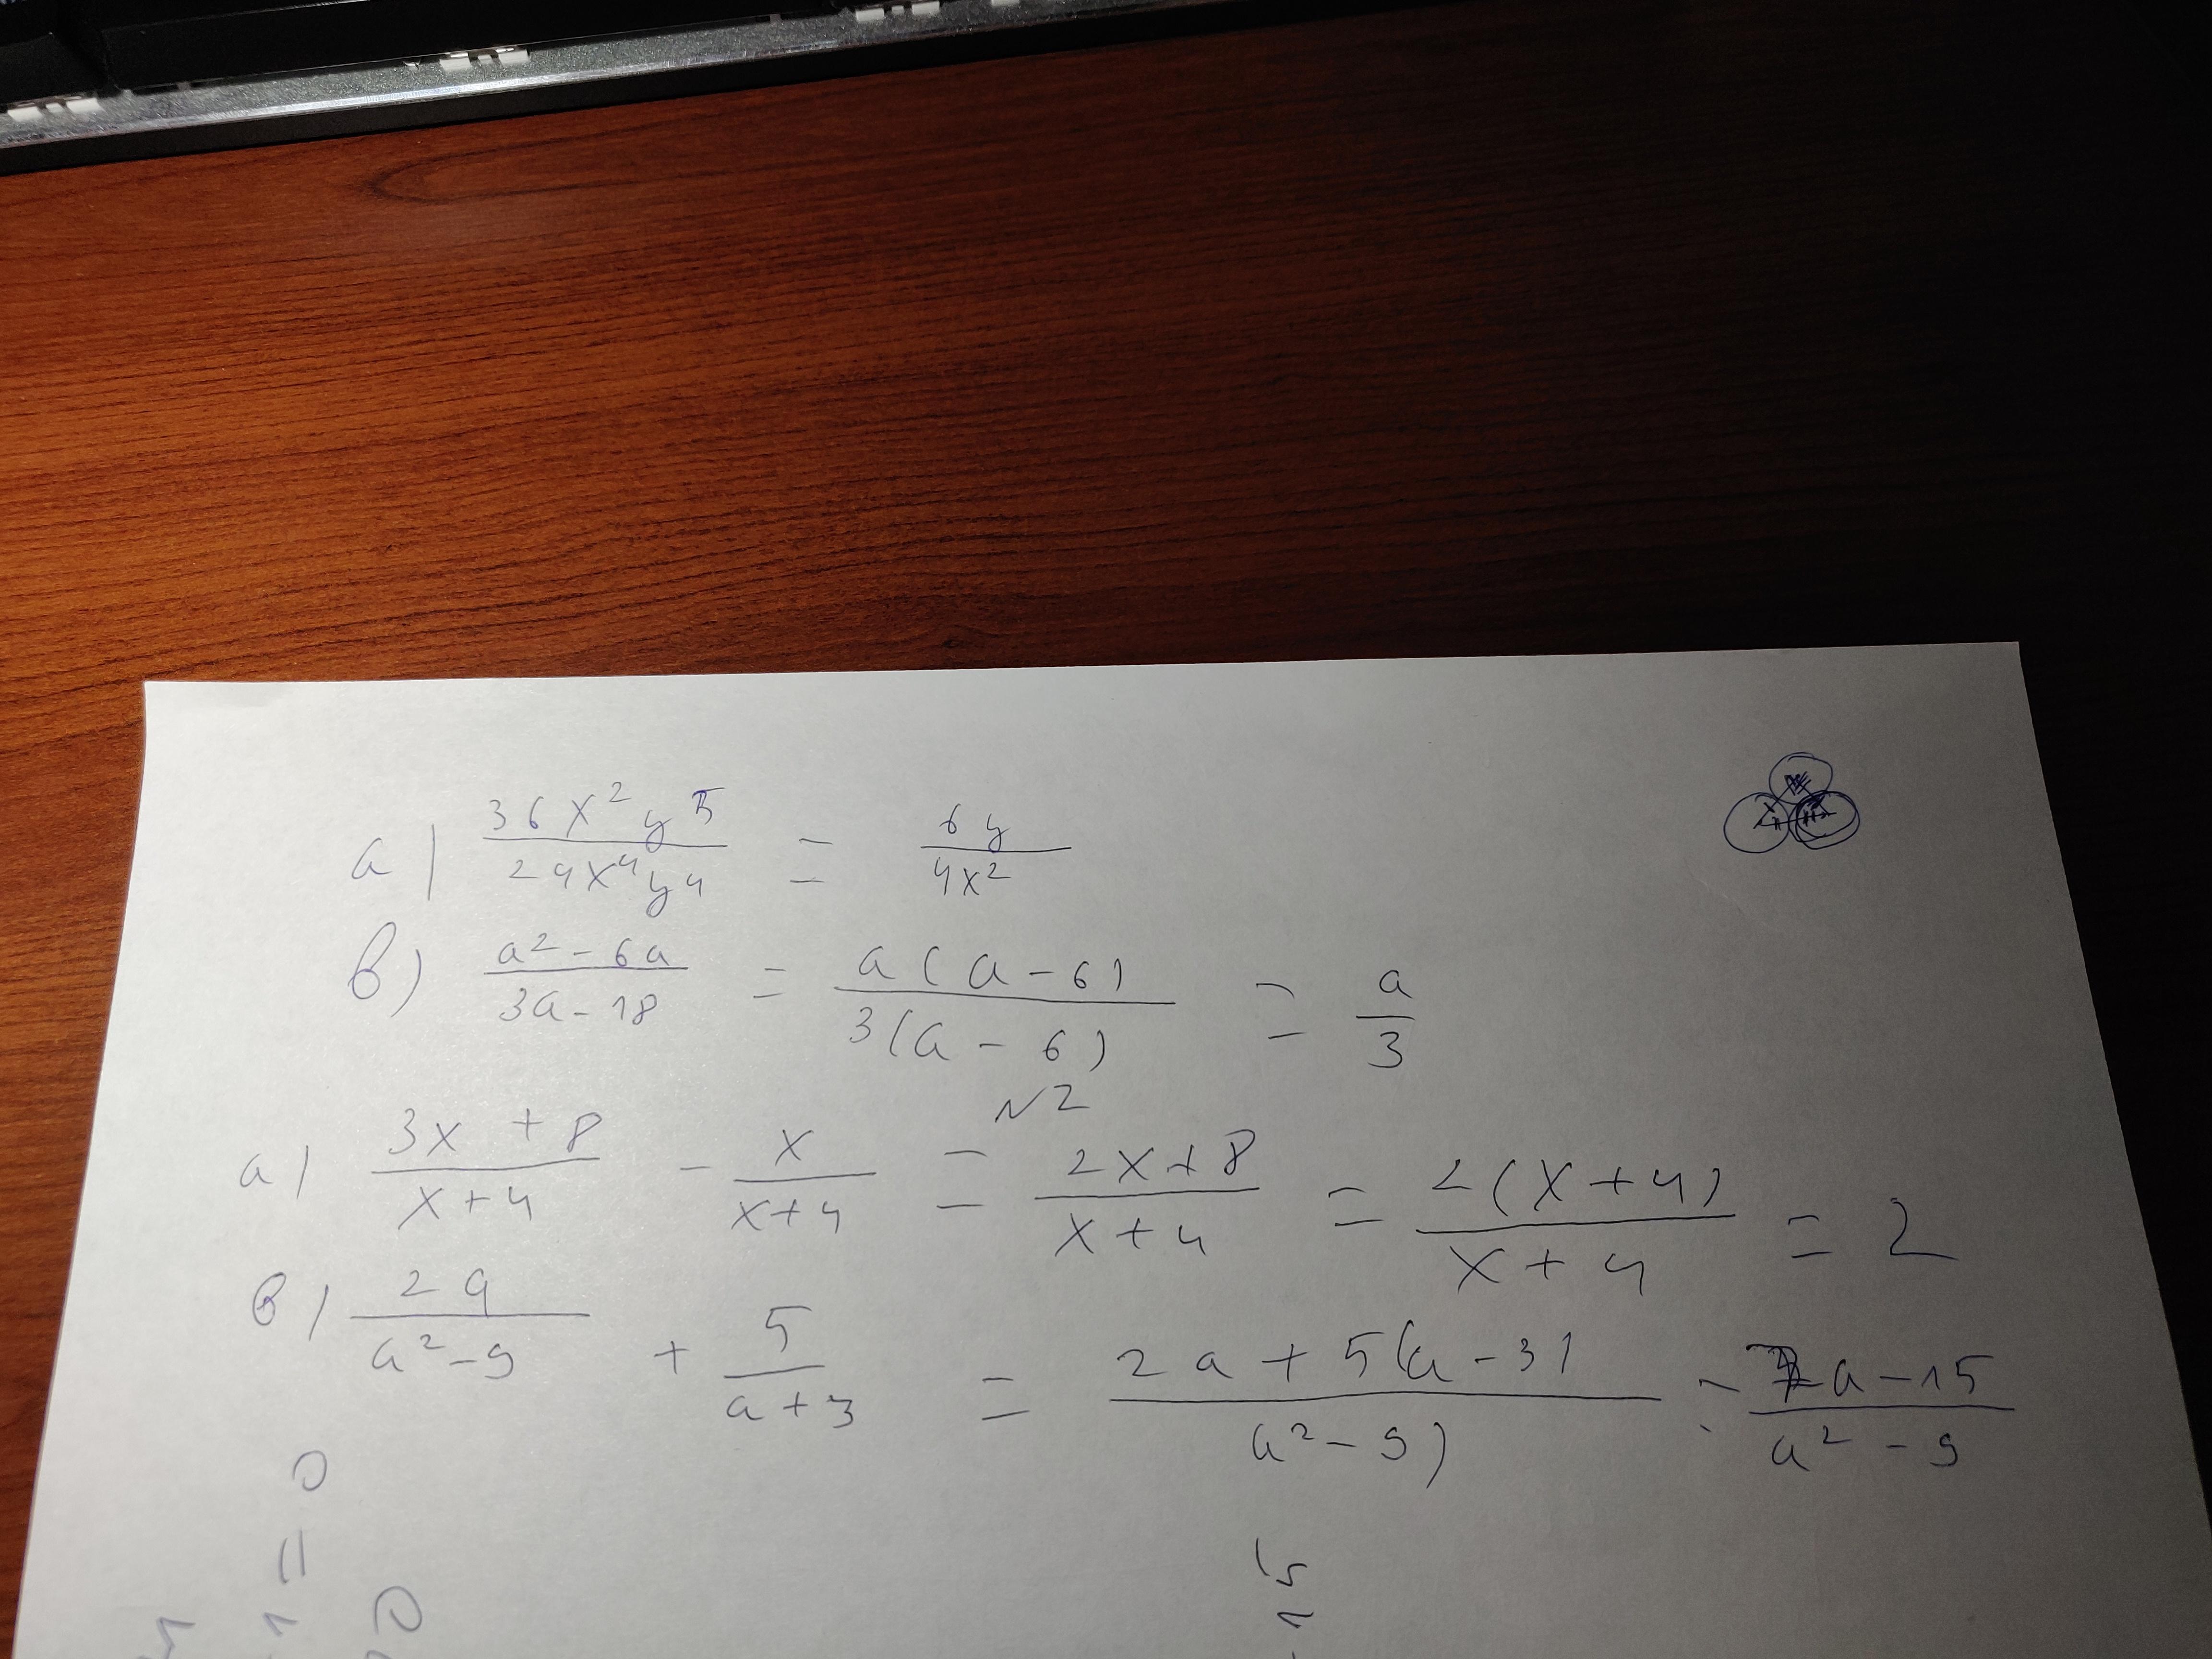 a) 36x²y⁵ / 24x⁴y⁴ = 6y / 4x²
б) a² - 6a / 3a - 18 = a(a - 6) / 3(a - 6) = a / 3
N2
a) 3x + 8 / x + 4 - x / x + 4 = 2x + 8 / x + 4 = 2(x + 4) / x + 4 = 2
б) 2a / a² - 9 + 5 / a + 3 = 2a + 5(a - 3) / a² - 9) = 7a - 15 / a² - 9